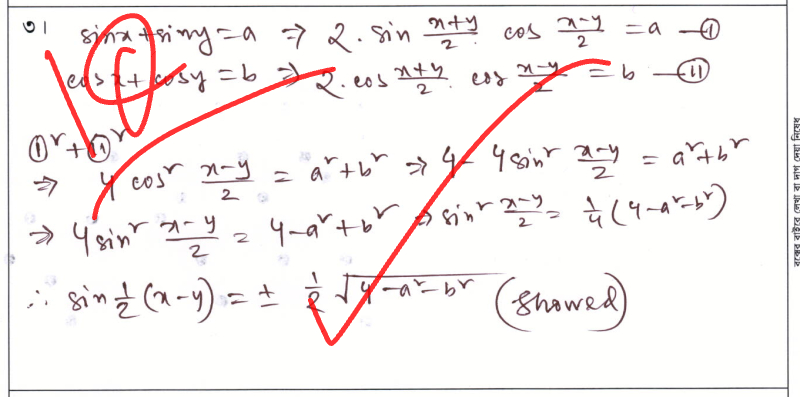 ৩। sinx + siny = a ⇒ 2. sin \frac{x+y}{2} cos \frac{x-y}{2} = a —(i)
cosx + cosy = b ⇒ 2. cos \frac{x+y}{2}. cos \frac{x-y}{2} = b —(ii)
(i)² + (ii)²
⇒ 4 cos² \frac{x-y}{2} = a² + b² ⇒ 4 - 4 sin² \frac{x-y}{2} = a² + b²
⇒ 4 sin² \frac{x-y}{2} = 4 - a² + b² ⇒ sin² \frac{x-y}{2} = \frac{1}{4} (4 - a² - b²)
∴ sin \frac{1}{2} (x-y) = ± \frac{1}{2} \sqrt{4 - a² - b²} (Showed)
বক্সের বাইরে লেখা বা দাগ দেয়া নিষেধ